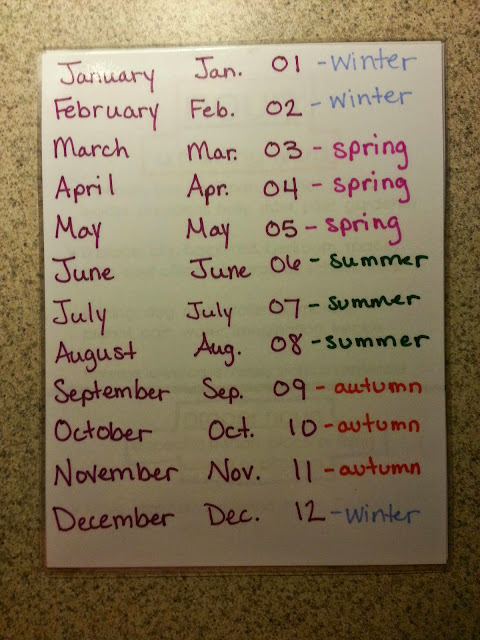 January Jan. 01 - winter
February Feb. 02 - winter
March Mar. 03 - spring
April Apr. 04 - spring
May May 05 - spring
June June 06 - summer
July July 07 - summer
August Aug. 08 - summer
September Sep. 09 - autumn
October Oct. 10 - autumn
November Nov. 11 - autumn
December Dec. 12 - winter